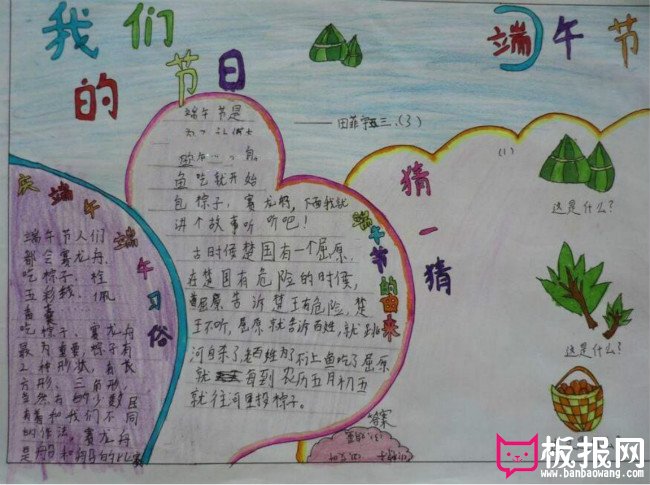 我们
的节日
端午节
田菲宇 三.(3)
端午节是
鱼吃就开始
包粽子，赛龙舟，下面我就
讲个故事听听吧！
古时候楚国有一个屈原，
在楚国有危险的时候，
屈原告诉楚王有危险，楚
王不听，屈原就告诉百姓，就跳
河自杀了老百姓为了不上鱼吃了屈原
就 每到农历五月初五
就往河里投粽子。
端午节的由来
庆端午
端午习俗
端午节人们
都会赛龙舟，
吃粽子，拴
五彩线，佩
香囊
吃粽子，赛龙舟
最为重要，粽子有
2种形状，有长
方形、三角形，
当然有的少数民
有着和我们不同
的作法，赛龙舟
是船和船的比赛
猜一猜
(1)
这是什么？
这是什么？
答案
板报网
www.banbaowang.com